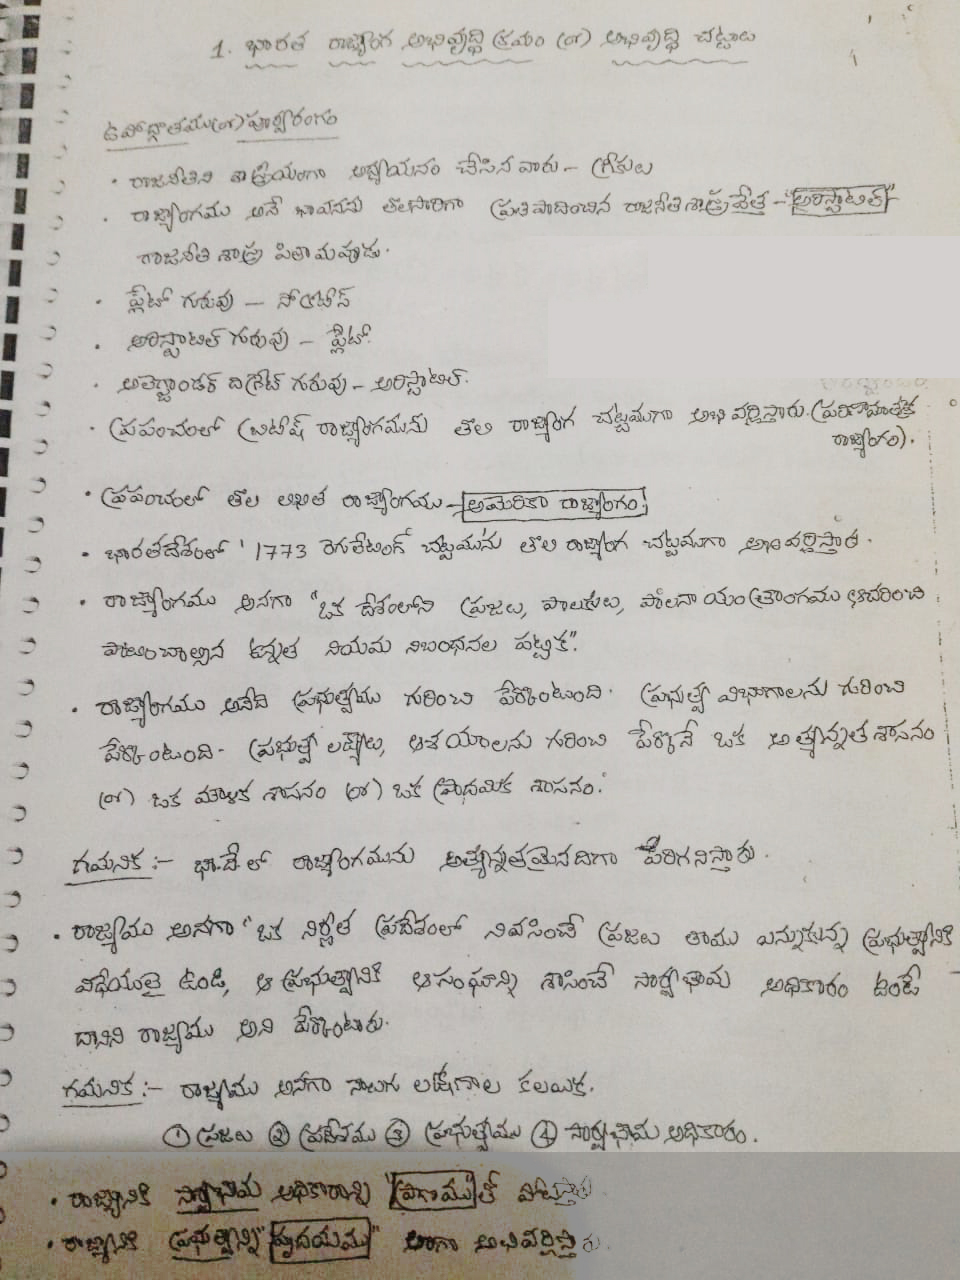 1. భారత రాజ్యాంగ అభివృద్ధి క్రమం (or) అభివృద్ధి చట్టాలు
ఉపోద్ఘాతము (or) పూర్వరంగం
• రాజనీతిని శాస్త్రీయంగా అధ్యయనం చేసిన వారు - గ్రీకులు
• రాజ్యాంగము అనే భావనను తొలిసారిగా ప్రతిపాదించిన రాజనీతి శాస్త్రవేత్త - "అరిస్టాటిల్"
రాజనీతి శాస్త్ర పితామహుడు.
• ప్లేటో గురువు - సోక్రటీస్
• అరిస్టాటిల్ గురువు - ప్లేటో.
• అలెగ్జాండర్ ది గ్రేట్ గురువు - అరిస్టాటిల్.
• ప్రపంచంలో బ్రిటీష్ రాజ్యాంగమును తొలి రాజ్యాంగ చట్టముగా అభివర్ణిస్తారు. (పరిణామాత్మక
రాజ్యాంగం).
• ప్రపంచంలో తొలి లిఖిత రాజ్యాంగము - అమెరికా రాజ్యాంగం.
• భారతదేశంలో '1773 రెగులేటింగ్ చట్టమును తొలి రాజ్యాంగ చట్టముగా అభివర్ణిస్తారు.
• రాజ్యాంగము అనగా "ఒక దేశంలోని ప్రజలు, పాలకులు, పాలనా యంత్రాంగము ఆచరించి
పాటించాల్సిన ఉన్నత నియమ నిబంధనల పట్టిక".
• రాజ్యాంగము అనేది ప్రభుత్వము గురించి పేర్కొంటుంది. ప్రభుత్వ విభాగాలను గురించి
పేర్కొంటుంది. ప్రభుత్వ లక్ష్యాలు, ఆశయాలను గురించి పేర్కొనే ఒక అత్యున్నత శాసనం
(or) ఒక మౌళిక శాసనం (or) ఒక ప్రాథమిక శాసనం.
గమనిక :- భా.దే లో రాజ్యాంగమును అత్యున్నతమైనదిగా పరిగనిస్తారు.
• రాజ్యము అనగా "ఒక నిర్ణీత ప్రదేశంలో నివసించే ప్రజలు తాము ఎన్నుకున్న ప్రభుత్వానికి
విధేయులై ఉండి, ఆ ప్రభుత్వానికి ఆ సంఘాన్ని శాసించే సార్వభౌమ అధికారం ఉంటే
దానిని రాజ్యము అని పేర్కొంటారు.
గమనిక :- రాజ్యము అనగా నాలుగు లక్షణాల కలయిక.
① ప్రజలు ② ప్రదేశము ③ ప్రభుత్వము ④ సార్వభౌమ అధికారం.
• రాజ్యానికి సార్వభౌమ అధికారాన్ని "ప్రాణము"తో పోలుస్తారు
• రాజ్యానికి ప్రభుత్వాన్ని "హృదయము" లాగా అభివర్ణిస్తారు.